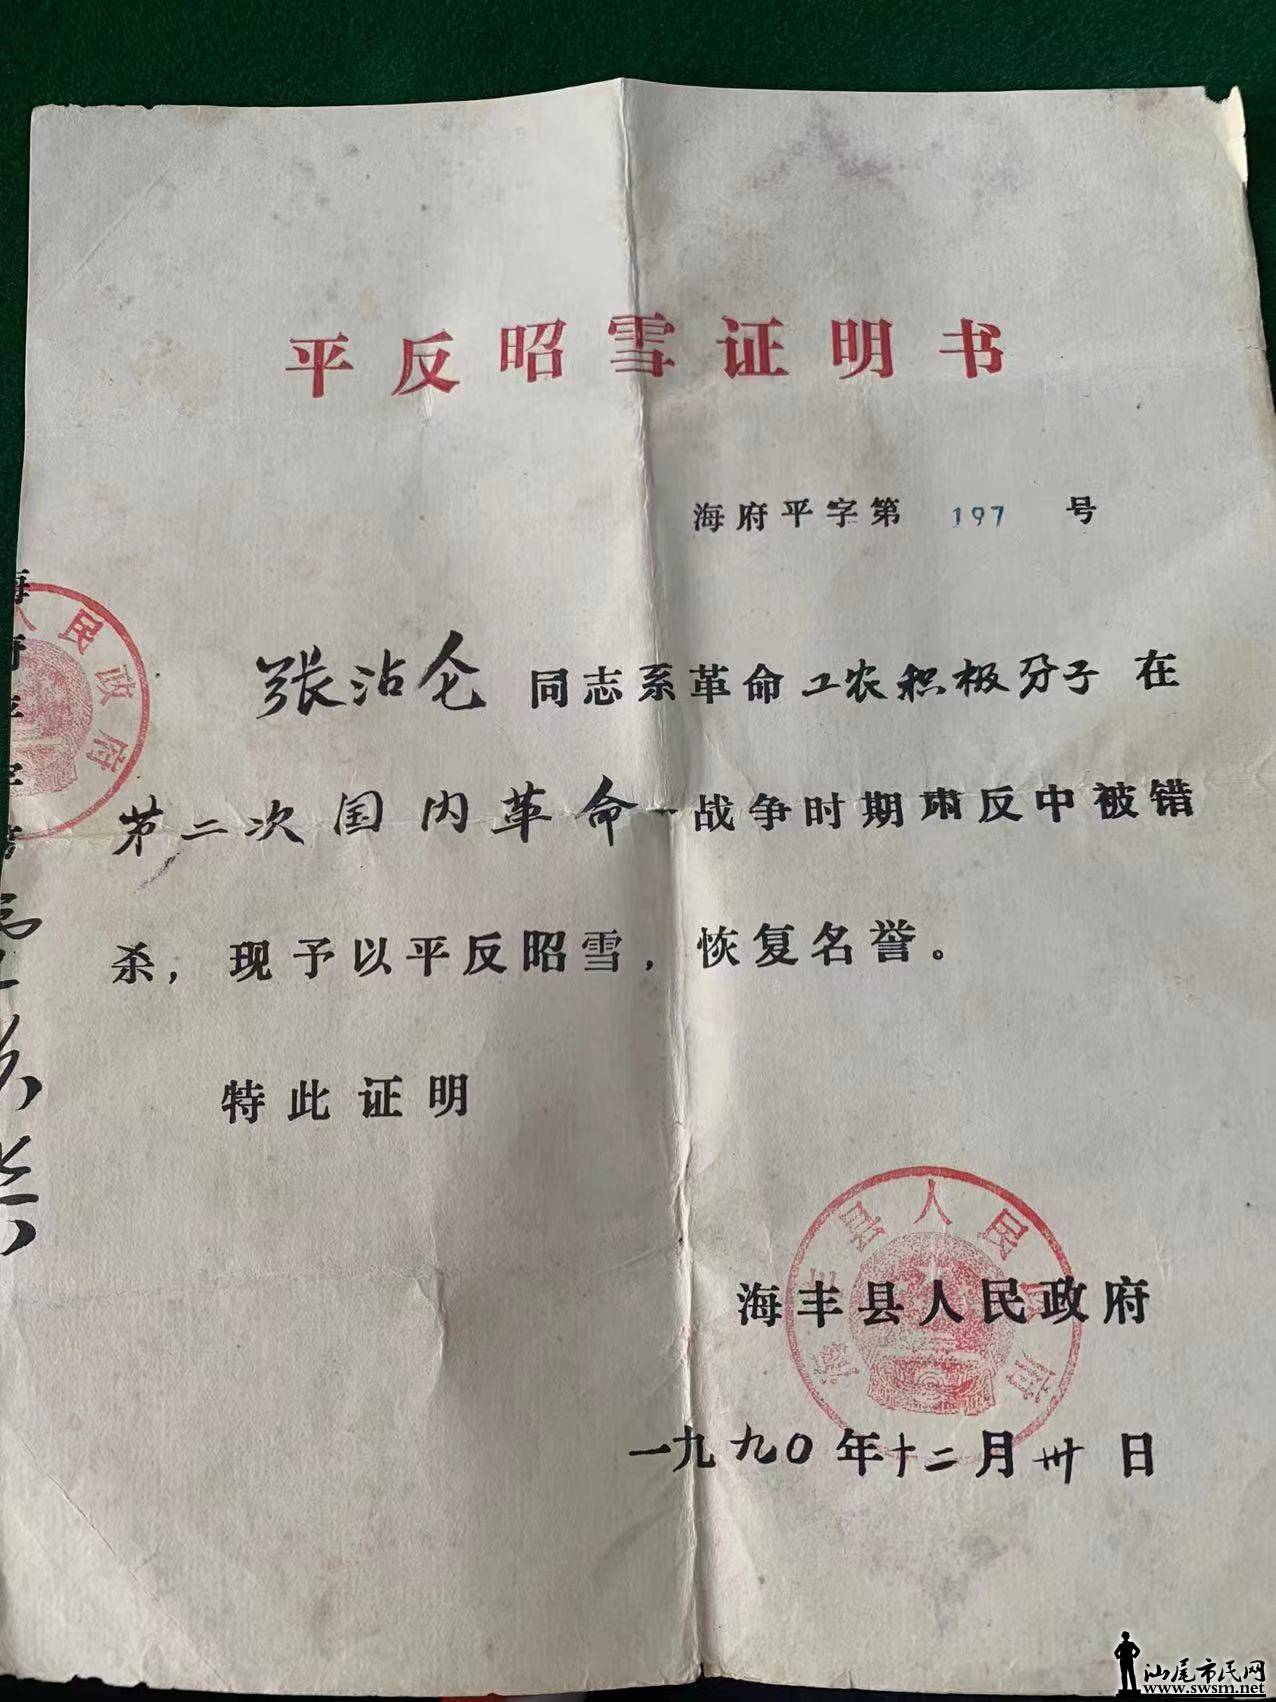 平反昭雪证明书
海府平字第 197 号
张沾仑 同志系革命工农积极分子在
第二次国内革命战争时期肃反中被错
杀，现予以平反昭雪，恢复名誉。
特此证明
海丰县人民政府
一九九〇年十二月卅日
人民政府
县人民 府
汕尾市民网
www.swsm.net